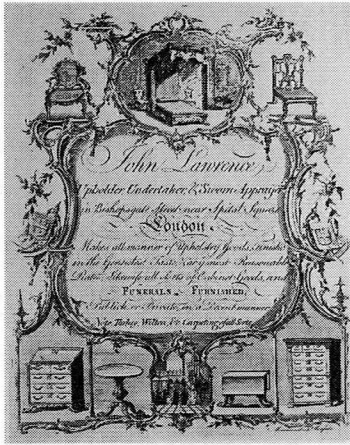 John Lawrence,
Upholder, Undertaker, & Sworn Appraiser
in Bishopsgate Street near Spital Square
London.
Makes all manner of Upholstry Goods,
in the Genteelest Taste, & at Reasonable
Rates, Likewise all Sorts of Cabinet Goods, and
FUNERALS FURNISHED,
Publick or Private, in a Decent manner.
NB Turkey Wilton, & Carpeting of all Sorts